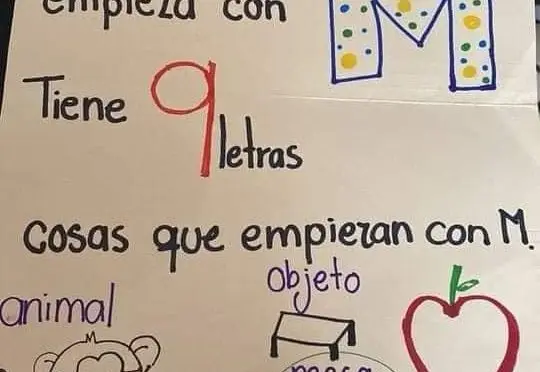 empieza con M
Tiene 9 letras
cosas que empiezan con M.
animal
objeto
mesa